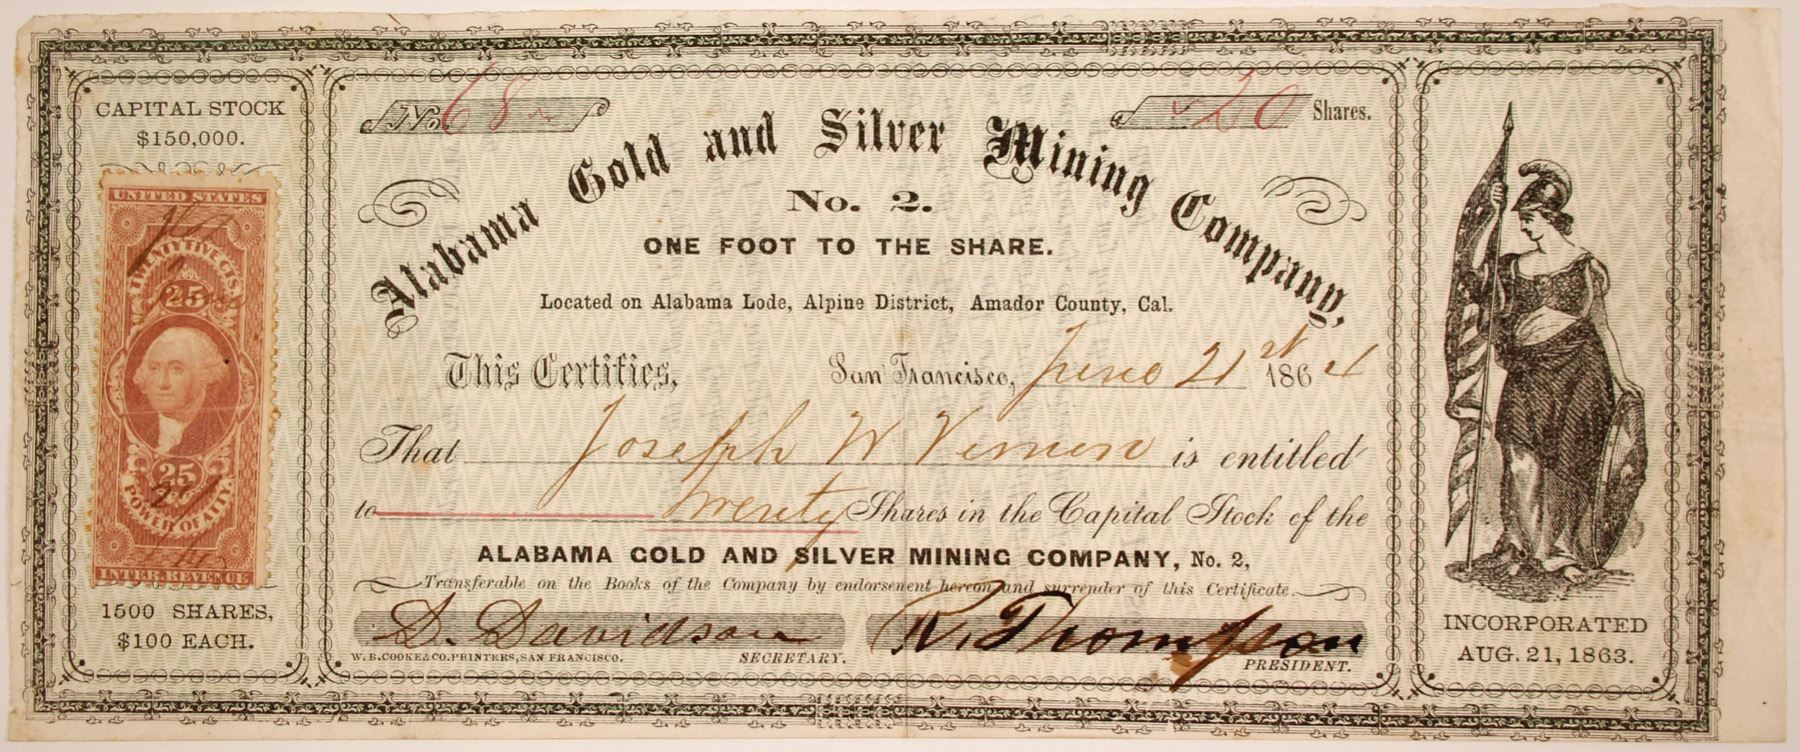 CAPITAL STOCK
$150,000.
UNITED STATES
TWENTY FIVE CTS.
25
25
POWER OF ATT'Y.
INTER. REVENUE
1500 SHARES,
$100 EACH.
No. 68
20 Shares.
Alabama Gold and Silver Mining Company,
No. 2.
ONE FOOT TO THE SHARE.
Located on Alabama Lode, Alpine District, Amador County, Cal.
This Certifies, San Francisco, June 21st 1864
That Joseph W Vernon is entitled
to Twenty Shares in the Capital Stock of the
ALABAMA GOLD AND SILVER MINING COMPANY, No. 2,
Transferable on the Books of the Company by endorsement hereon and surrender of this Certificate.
D. Davidson R. Thompson
W. B. COOKE & CO. PRINTERS, SAN FRANCISCO. SECRETARY. PRESIDENT.
INCORPORATED
AUG. 21, 1863.